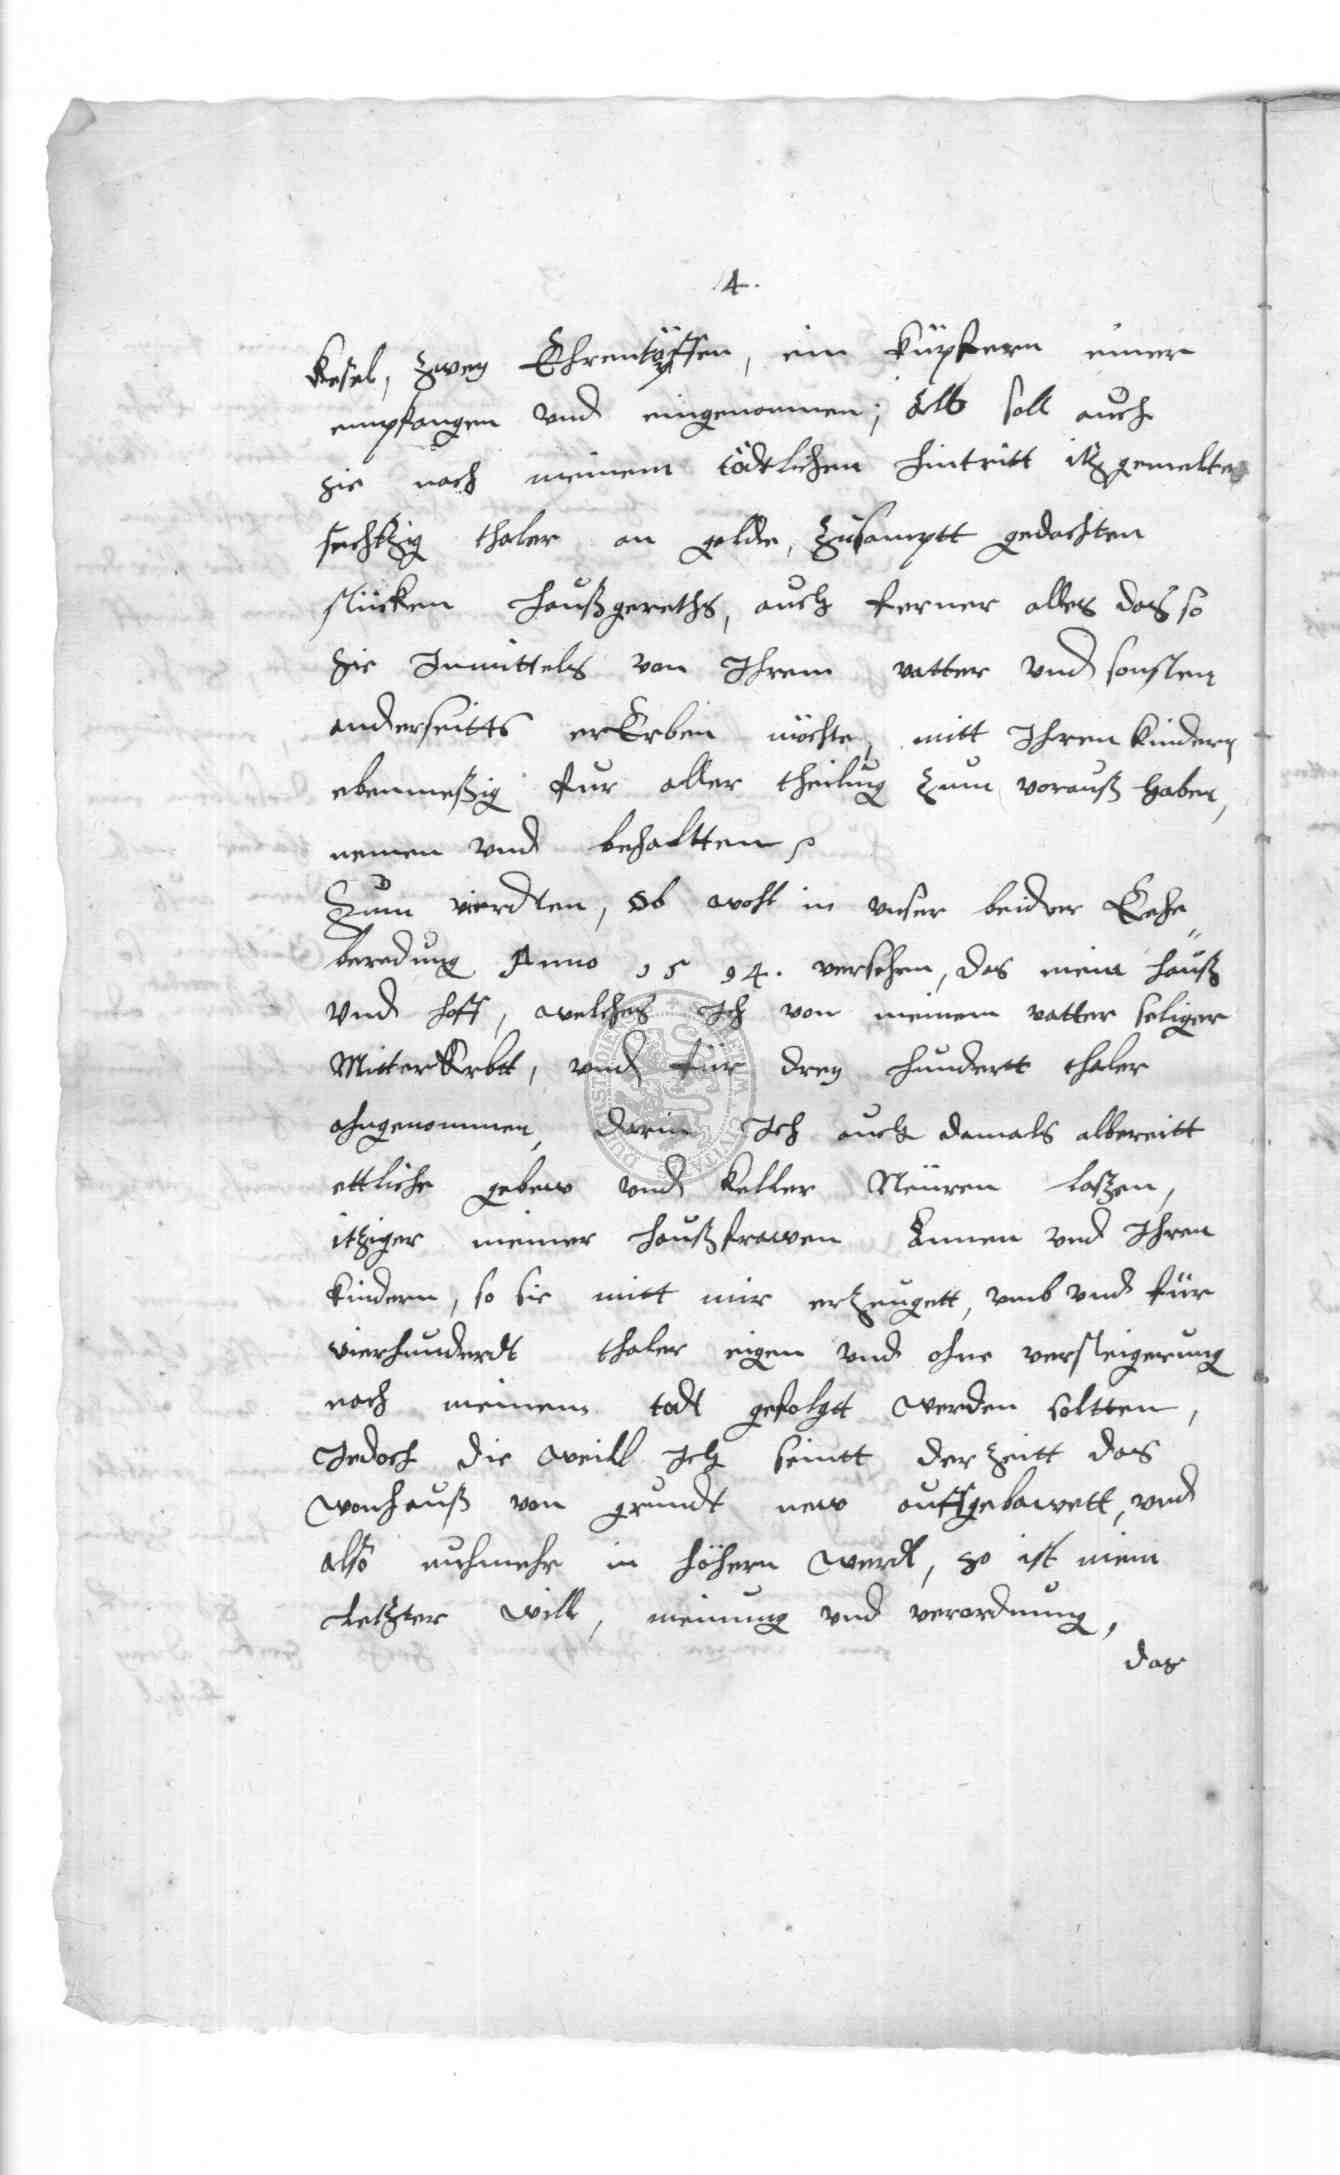 4.
Kesel, zwey Ehrentöpffen, ein küpfern eimer
empfangen vnd eingenommen; Alß soll auch
sie nach meinem tödtlichen hintritt itzgemelte
sechtzig thaler an gelde, zusamptt gedachten
stücken haußgereths, auch ferner alles das so
sie Inmittels von Ihrem vatter vnd sonsten
anderseitts ererben möchte, mitt Ihren kindern
ebenmeßig fur aller theilung zum vorauß haben,
nemen vnd behaltten
Zum vierdten, Ob wohl in vnser beider Ehe¬
beredung Anno 1594. versehen, das mein hauß
vnd hoff, welches Ich von meinem vatter seliger
Mitererbtt, vnd für drey hundertt thaler
ahngenommen, darin Ich auch damals allbereitt
ettliche gebew vnd keller Meüren laßen,
itziger meiner haußfrawen Annen vnd Ihren
kindern, so sie mitt mir erzeugett, vmb vnd für
vierhunderdt thaler eigen vnd ohne versteigerung
nach meinem todt gefolgtt werden soltten,
Jedoch die weill Ich seintt der zeitt das
wonhauß von grundt new auffgebawett, vnd
also nuhmehr in höhern werdt, so ist mein
Letzter will, meinung vnd verordnung,
das